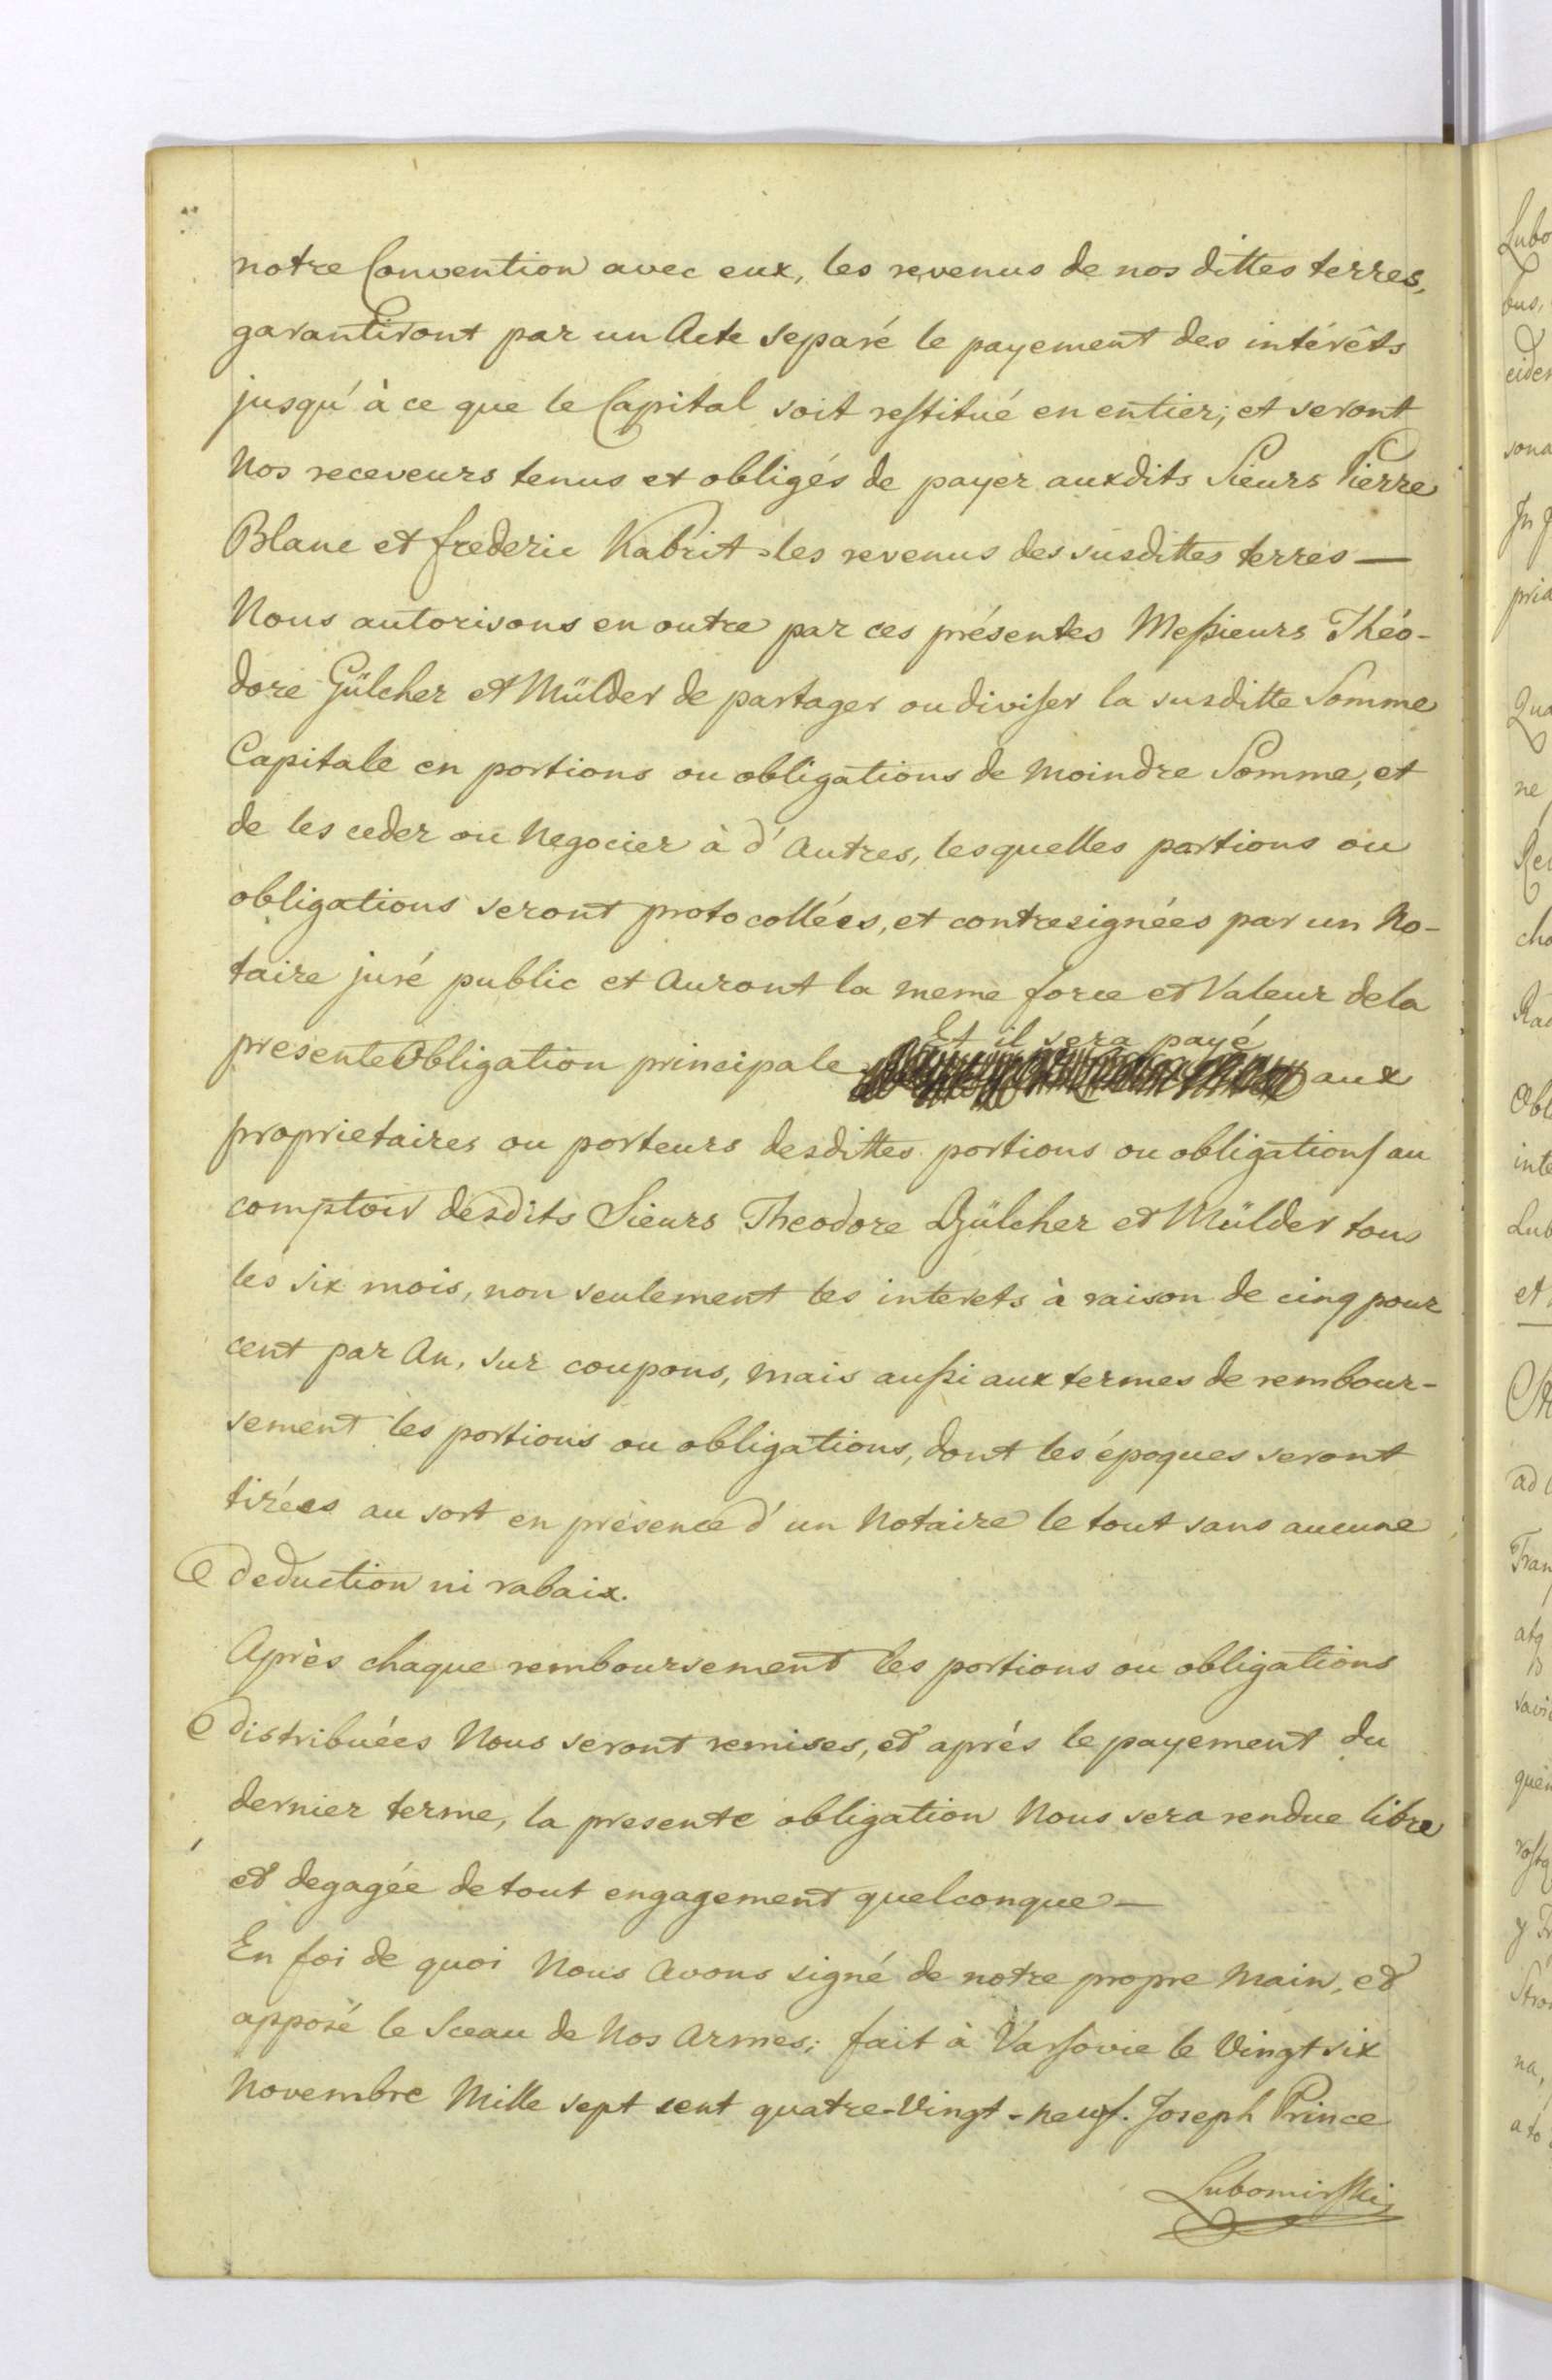 notre Convention avec eux, les revenus de nos dittes terres,
garantiront par un Acte separé le payement des intérêts
jusqu'à ce que le Capital soit restitué en entier; et seront
Nos receveurs tenus et obligés de payer auxdits Sieurs Pierre
Blanc et frederic Kabrit les revenus des susdittes terres —
Nous autorisons en outre par ces présentes Messieurs Théo-
dore Gülcher et Mülder de partager ou diviser la susditte Somme
Capitale en portions ou obligations de moindre Somme, et
de les ceder ou Negocier à d'Autres, lesquelles portions ou
obligations seront protocollées, et contresignées par un No-
taire juré public et Auront la meme force et Valeur de la
presente Obligation principale Et il sera payé aux
proprietaires ou porteurs desdittes portions ou obligations au
comptoir desdits Sieurs Theodore Gülcher et Mülder tous
les six mois, non seulement les interets à raison de cinq pour
cent par An, sur coupons, mais aussi aux termes de rembour-
sement les portions ou obligations, dont les époques seront
tirées au sort en présence d'un Notaire le tout sans aucune
deduction ni rabaix.
Après chaque remboursement les portions ou obligations
distribuées Nous seront remises, et après le payement du
dernier terme, la presente obligation Nous sera rendue libre
et degagée de tout engagement quelconque —
En foi de quoi Nous Avons signé de notre propre Main, et
apposé le Sceau de Nos Armes; fait à Varsovie le Vingt six
Novembre Mille sept cent quatre-Vingt-neuf. Joseph Prince
Lubomirski